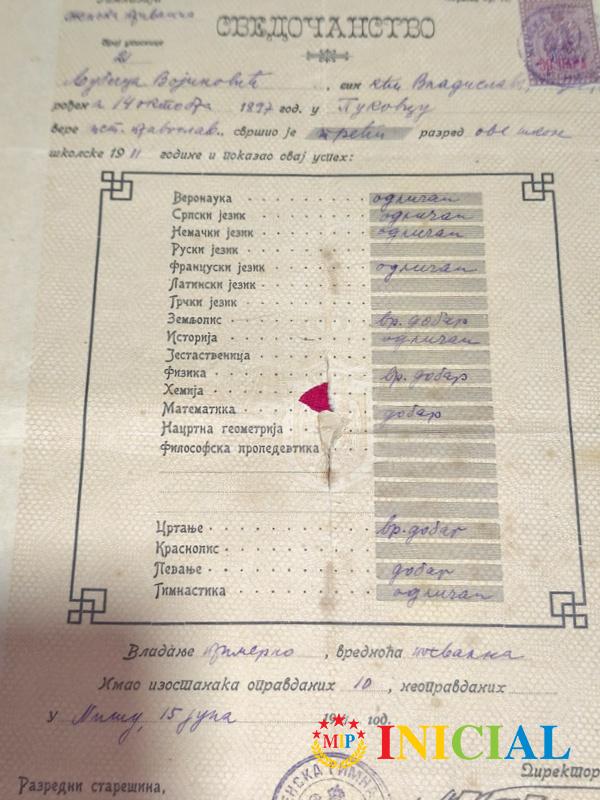 женска гимназија
Број уписнице
СВЕДОЧАНСТВО
2
Љубица Војиновић, син кћи Владислава,
рођен а 14 октобра 1897 год. у Пуковцу
вере ист. православ., свршио је трећи разред ове школ
школске 1911 године и показао овај успех:
Веронаука одличан
Српски језик одличан
Немачки језик одличан
Руски језик
Француски језик одличан
Латински језик
Грчки језик
Земљопис вр. добар
Историја одличан
Јестаственица
Физика вр. добар
Хемија
Математика добар
Нацртна геометрија
Философска пропедевтика
Цртање вр. добар
Краснопис
Певање добар
Гимнастика одличан
Владање примерно, вредноћа похвална
Имао изостанака оправданих 10, неоправданих
У Нишу, 15 јуна 19 год.
MIP INICIAL
Директор
Разредни старешина,